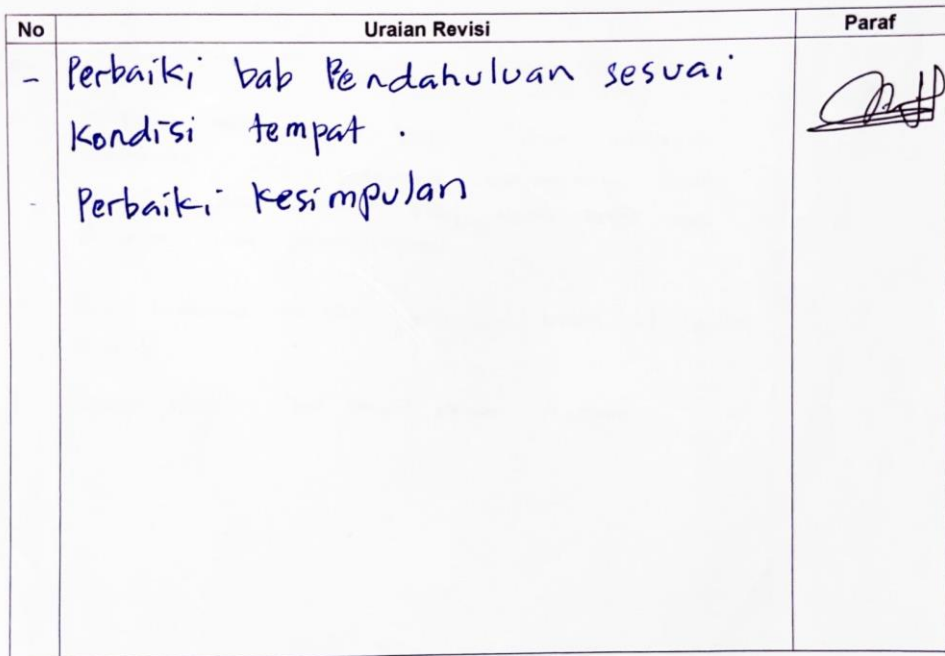 No Uraian Revisi Paraf
- Perbaiki bab Pendahuluan sesuai
Kondisi tempat .
- Perbaiki kesimpulan